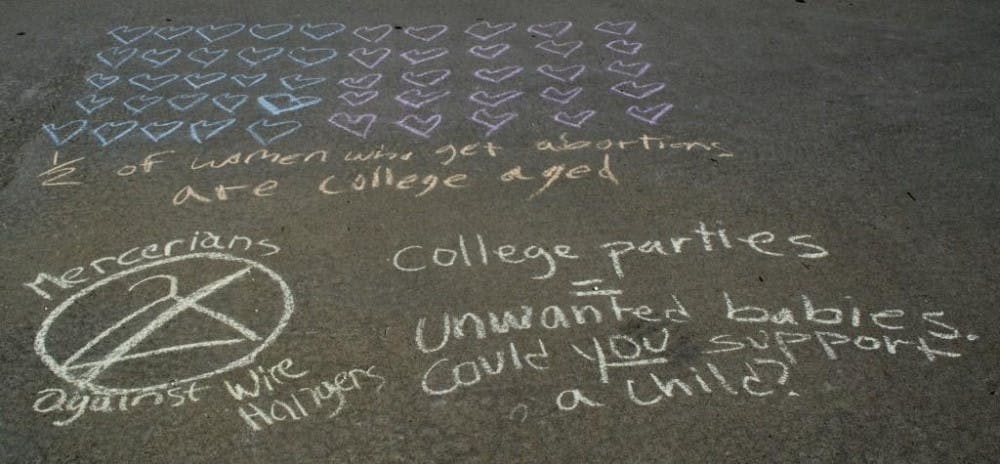 1/2 of women who get abortions
are college aged
Mercerians
against Wire
Hangers
college parties
=
unwanted babies.
Could you support
a child?